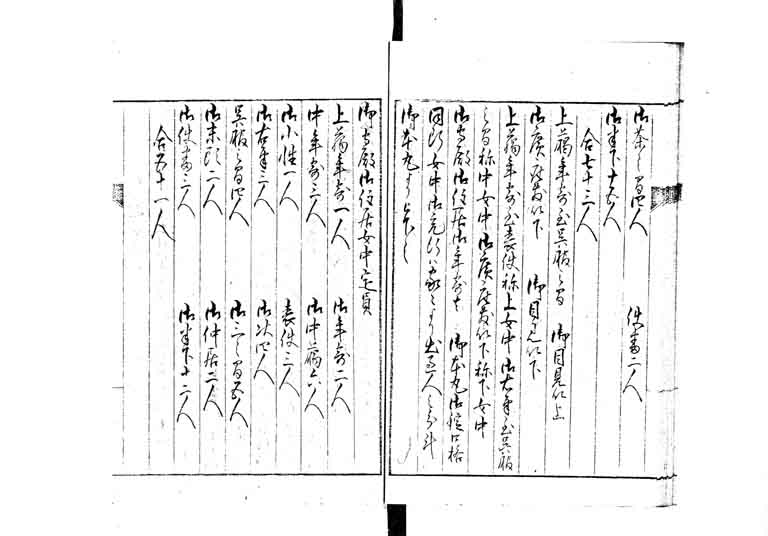 御茶之間四人　使番二人
御半下十五人
合七十三人
上﨟年寄ゟ呉服之間　御目見以上
御廣座敷以下　御目見以下
上﨟年寄ゟ表使称上女中　御右筆ゟ呉服
之間称中女中　御廣座敷以下称下女中
御守殿御住居御年寄
同所女中御宛行
御本丸ゟ
御守殿御住居女中定員
上﨟年寄一人　御年寄二人
中年寄三人　御中﨟六人
御小性一人　表使三人
御右筆三人　御次四人
呉服之間四人　御三之間五人
御末頭二人　御仲居二人
御使番三人　御半下十二人
合五十一人